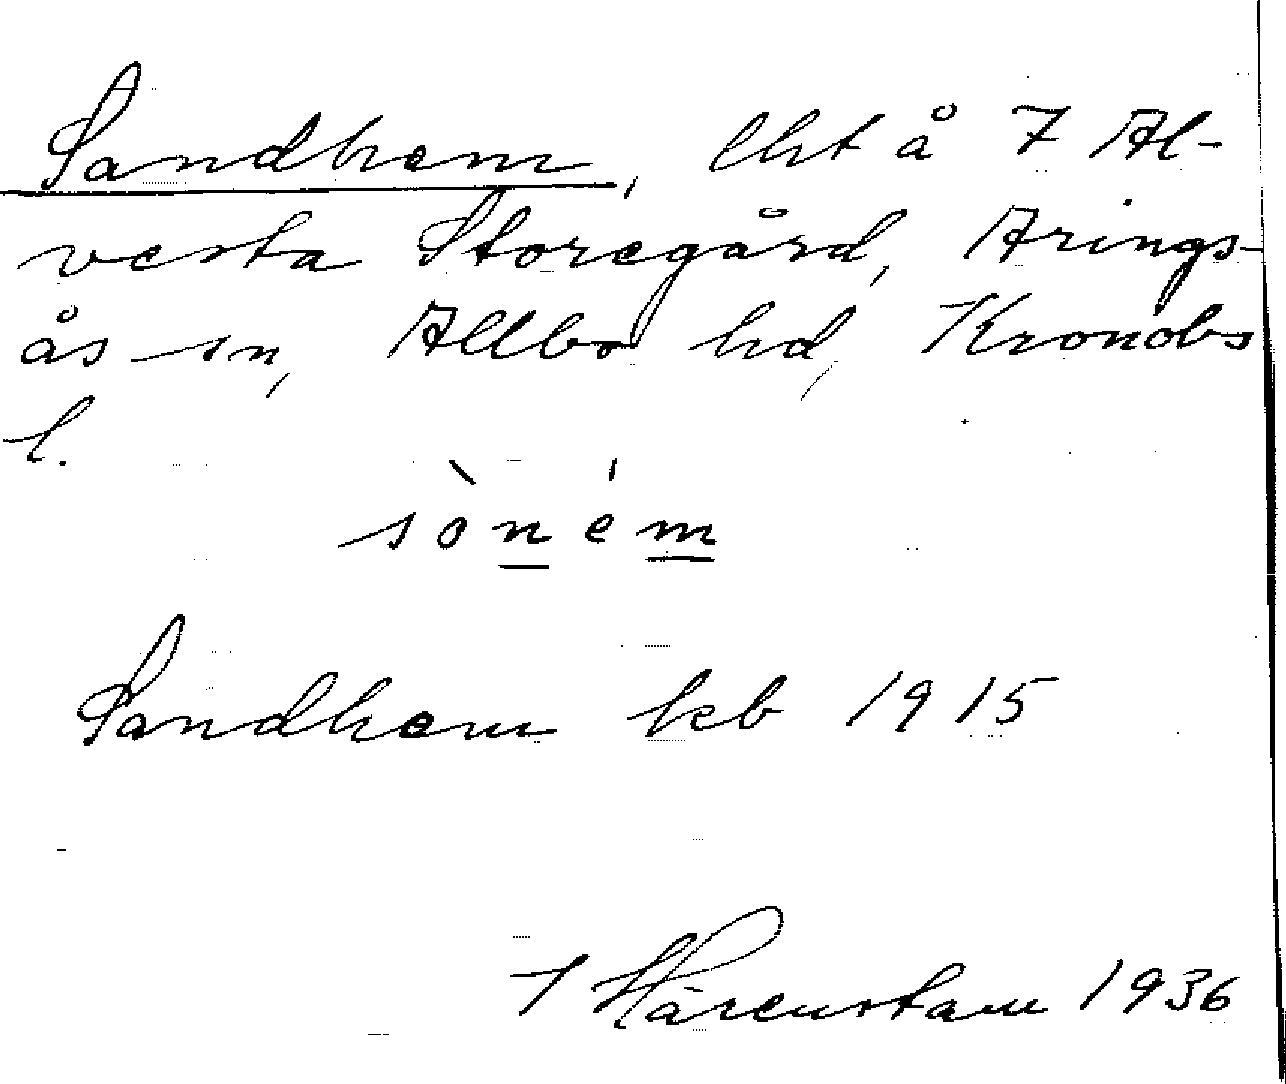 Sandhem, lht å 7 Al-
vesta Storegård, Arings-
ås sn, Allbo hd, Kronobs
l.
sòném
Sandhem kb 1915
J Härenstam 1936